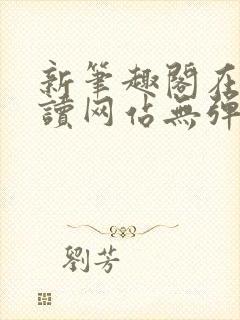 新筆趣閣在
讀网佔無彈
劉芳